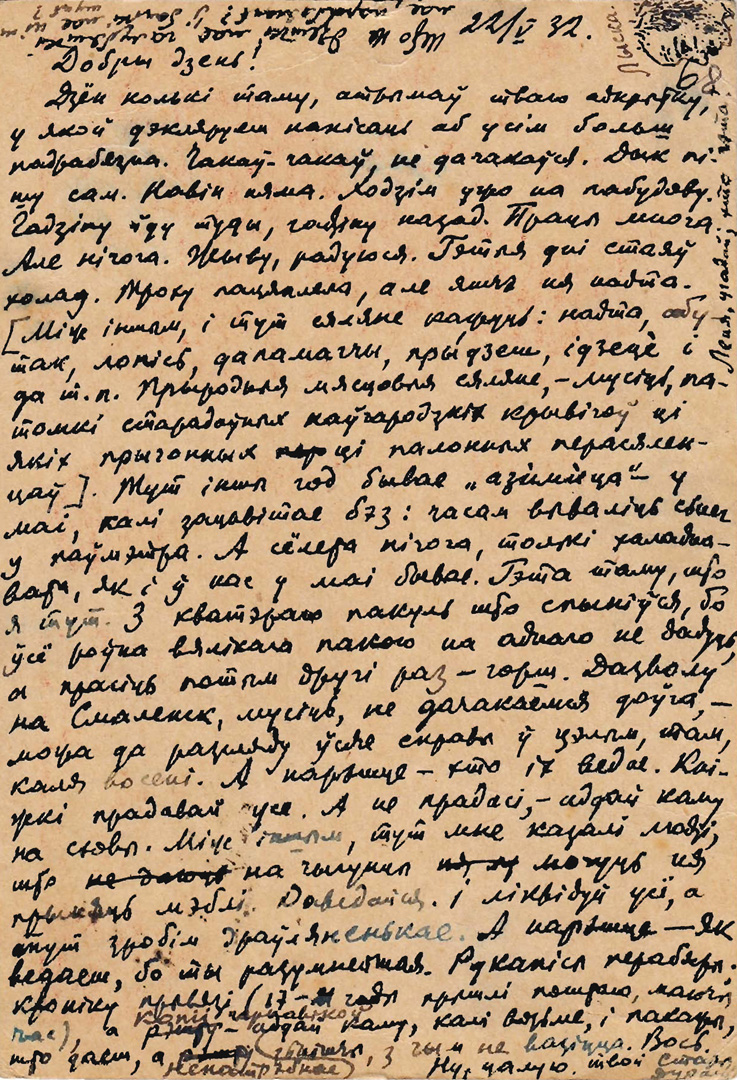 22/V 32.
Добры дзень!
Дзён колькі таму, атрымаў тваю адкрытку,
у якой дэкляруеш напісаць аб усім больш
падрабязна. Чакаў-чакаў, не дачакаўся. Дык пі-
шу сам. Навін няма. Ходзім усё на пабудову.
Гадзіну йду туды, гадзіну назад. Працы многа.
Але нічога. Жыву, радуюся. Гэтыя дні стаяў
холад. Троху пацяплела, але яшчэ ня надта.
[Між іншым, і тут сяляне кажуць: надта, абу-
так, лопісь, дапамаччы, прыдзеш, ідзецё і
да т.п. Прыродныя мясцовыя сяляне, – мусіць, па-
томкі старадаўных наўгародзкіх крывічоў ці
якіх прыгонных ці палонных перасялен-
цаў]. Тут іншы год бывае „азіміца“ – у
маі, калі зацьвітае бэз: часам вываліць сьнег
у паўмэтра. А сёлета нічога, толькі халадна-
вата, як і ў нас у маі бывае. Гэта таму, што
я тут. З кватэраю пакуль што спыніўся, бо
ўсё роўна вялікага пакою на аднаго не дадуць,
а прасіць потым другі раз – горш. Дазволу
на Смаленск, мусіць, не дачакаемся доўга, –
можа да разгляду ўсяе справы ў цэлым, там,
каля восені. А нарэшце – хто іх ведае. Кні-
жкі прадавай усе. А не прадасі, – аддай каму
на сховы. Між іншым, тут мне казалі людзі,
што не даюць на чыгунцы могуць ня
прыняць мэблі. Даведайся. І ліквідуй усё, а
тут зробім драўляненькае. А нарэшце – як
ведаеш, бо ты разумнейшая. Рукапісы перабяры.
Кроніку прывязі (17- гады прышлі поштаю, маючы
час), а – аддай каму, калі возьме, і пакажы,
што даеш, а , з чым не вазіцца. Вось.
непатрэбнае)
Ну, цалую. твой стары
Лёня, угадай, хто гэта.